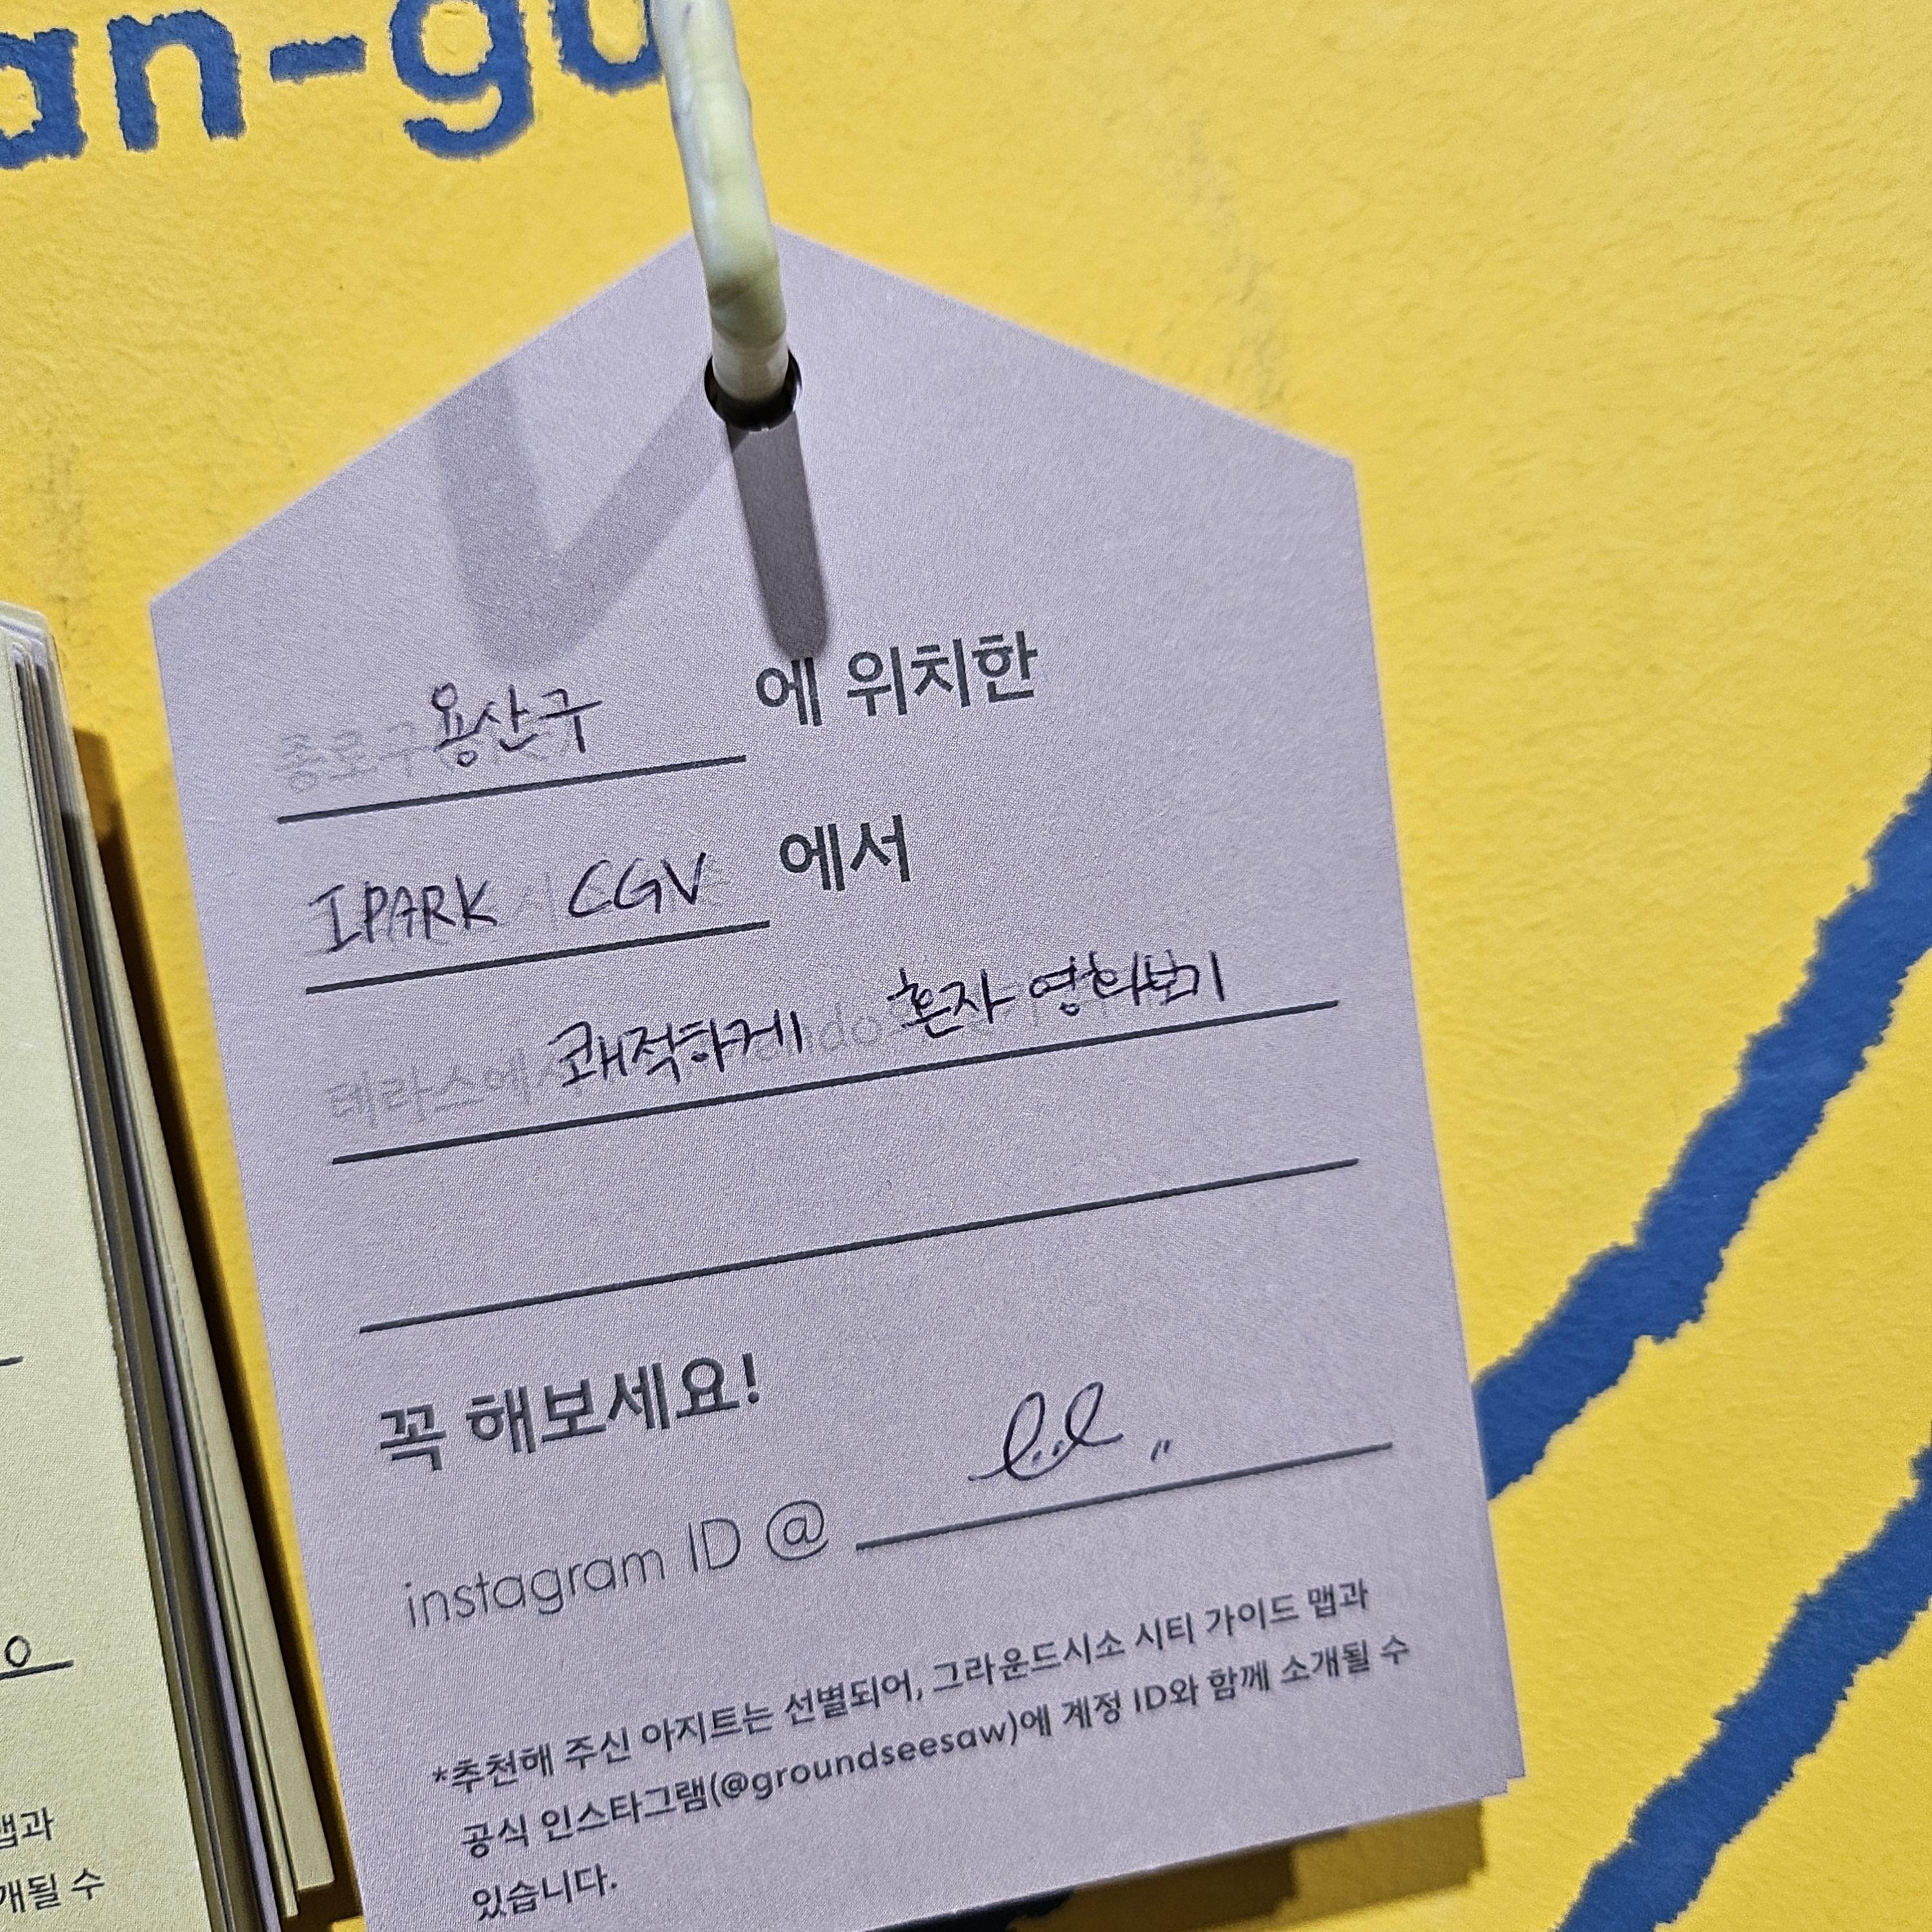 an-gu
용산구 에 위치한
IPARK CGV 에서
쾌적하게 혼자 영화보기
꼭 해보세요!
instagram ID @
*추천해 주신 아지트는 선별되어, 그라운드시소 시티 가이드 맵과
공식 인스타그램(@groundseesaw)에 계정 ID와 함께 소개될 수
있습니다.
맵과
개될 수